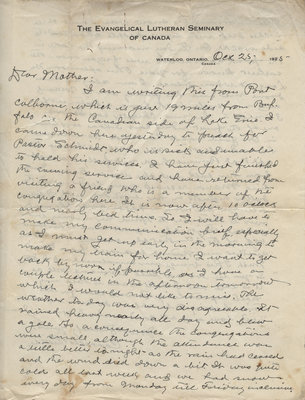 THE EVANGELICAL LUTHERAN SEMINARY
OF CANADA
WATERLOO, ONTARIO, Oct 25, 1925
CANADA
Dear Mother:
I am writing this from Port
Colborne, which is just 19 miles from Buf-
falo on the Canadian side of Lake Erie. I
came down here yesterday to preach for
Pastor Schmidt, who is sick and unable
to hold his services. I have just finished
the evening services and have returned from
visiting a friend who is a member of the
congregation here. It is now after 10 o'clock
and nearly bed time. So I will have to
make my communication brief, especially
as I must get up early in the morning to
make my train for home. I want to get
back by noon if possible, as I have a
couple lectures in the afternoon tomorrow
which I would not like to miss. The
weather to-day was very disagreeable. It
rained heavy nearly all day and blew
a gale. As a consequence the congregations
were small although the attendance was
a little better to-night as the rain had ceased
and the wind died down a bit. It was quite
cold all last week and we had snow
every day from Monday till Friday inclusive